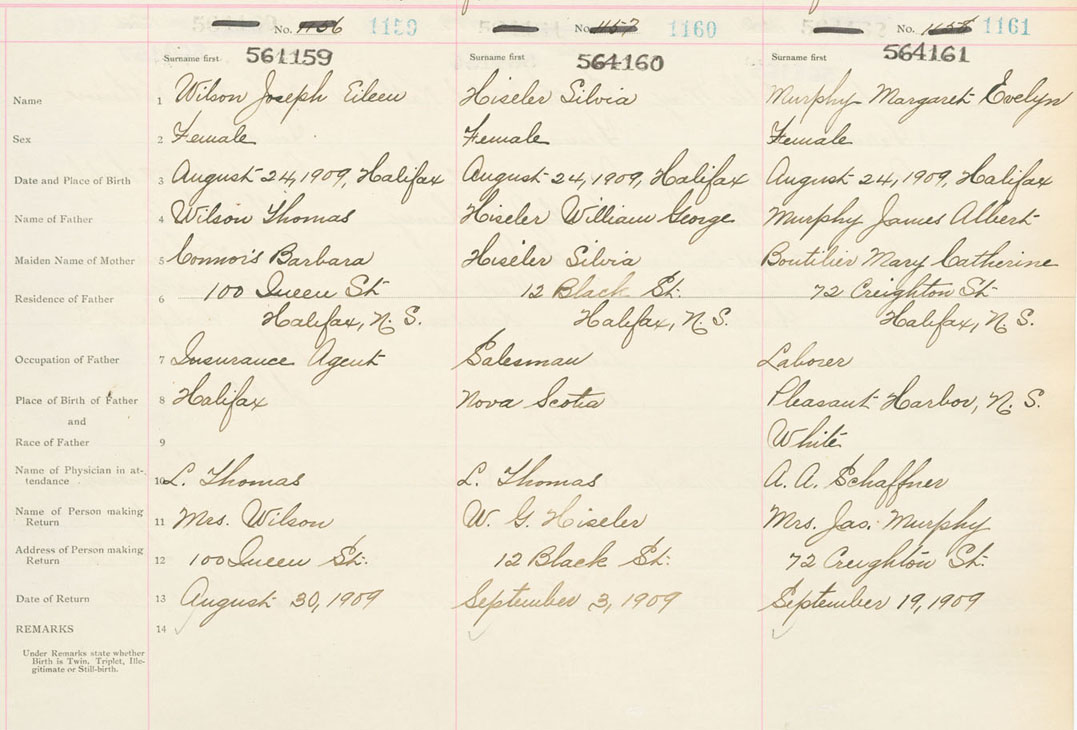 No. 1156 1159 No. 1157 1160 No. 1158 1161
Surname first 561159 Surname first 564160 Surname first 564161
Name 1 Wilson Joseph Eileen Hiseler Silvia Murphy Margaret Evelyn
Sex 2 Female Female Female
Date and Place of Birth 3 August 24, 1909, Halifax August 24, 1909, Halifax August 24, 1909, Halifax
Name of Father 4 Wilson Thomas Hiseler William George Murphy James Albert
Maiden Name of Mother 5 Connors Barbara Hiseler Silvia Boutilier Mary Catherine
Residence of Father 6 100 Queen St. 12 Black St. 72 Creighton St.
Halifax, N. S. Halifax, N. S. Halifax, N. S.
Occupation of Father 7 Insurance Agent Salesman Laborer
Place of Birth of Father 8 Halifax Nova Scotia Pleasant Harbor, N. S.
and
Race of Father 9 White
Name of Physician in at-
tendance 10 L. Thomas L. Thomas A. A. Schaffner
Name of Person making
Return 11 Mrs. Wilson W. G. Hiseler Mrs. Jas. Murphy
Address of Person making
Return 12 100 Queen St. 12 Black St. 72 Creighton St.
Date of Return 13 August 30, 1909 September 3, 1909 September 19, 1909
REMARKS 14
Under Remarks state whether
Birth is Twin, Triplet, Ille-
gitimate or Still-birth.